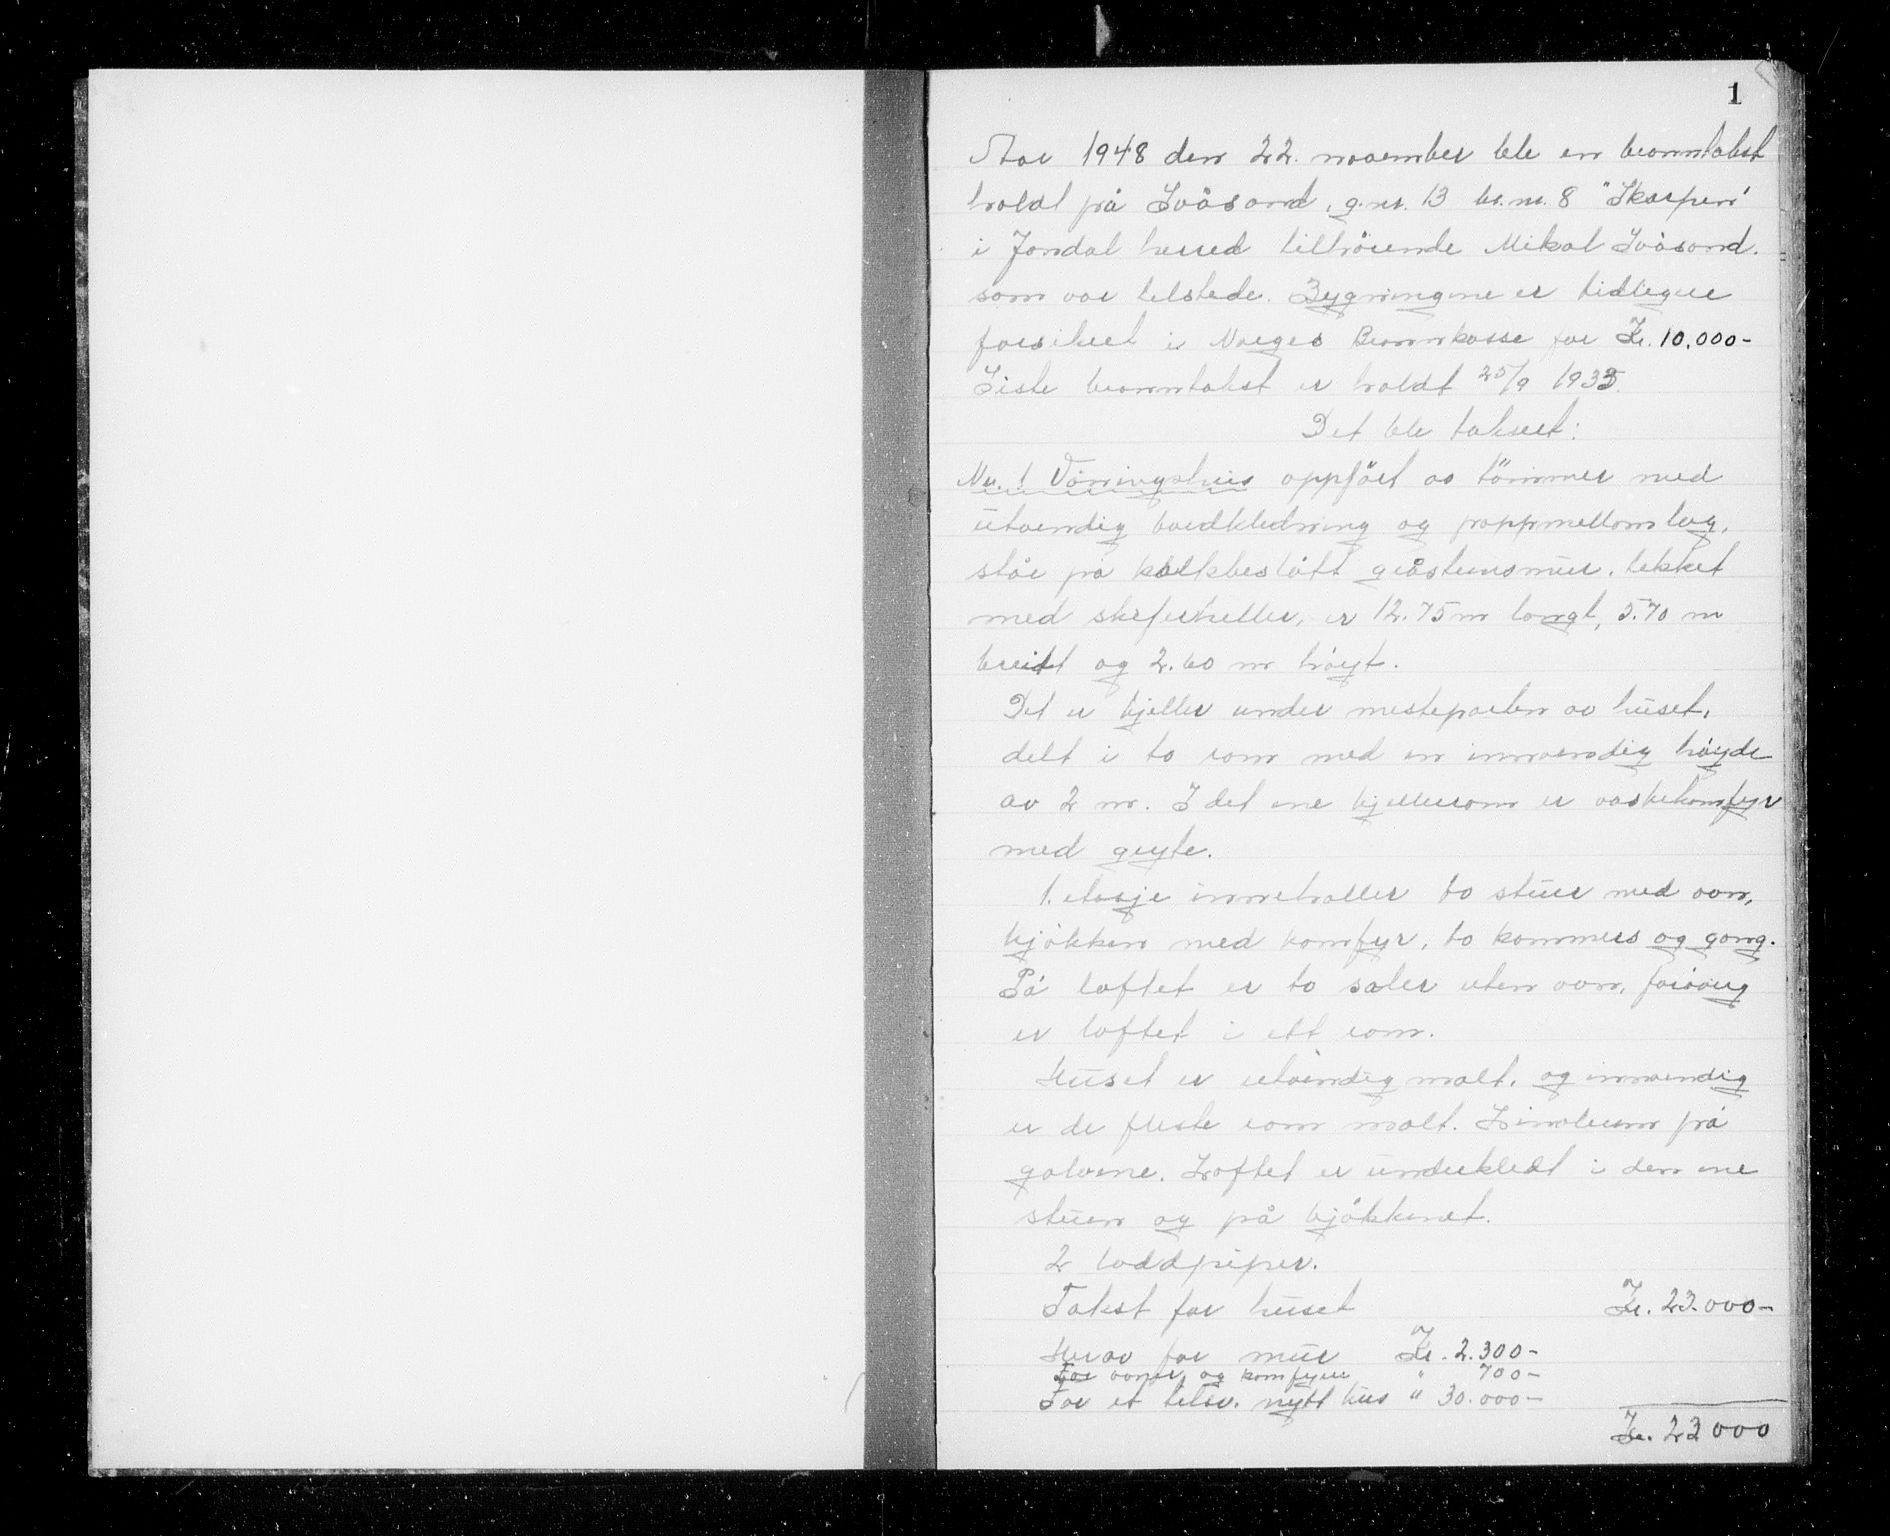 1
Aar 1948 den 22. november ble en branntakst
holdt på Svåsand, g.nr. 13 br.nr. 8 "Skarpen"
i Jondal herred tilhörende Mikal Svåsand.
som var tilstede. Bygningene er tidligere
forsikret i Norges Brannkasse for Kr. 10.000-
Siste branntakst er holdt 25/9 1933.
Det ble taksert:
Nr. 1 Våningshus oppfört av tömmer med
utvendig bordkledning og pappmellomlag,
står på kalkbeslått gråsteinsmur, tekket
med skiferheller, er 12.75 m langt, 5.70 m
breidt og 2.60 m höyt.
Det er kjeller under mesteparten av huset,
delt i to rom med en innvendig höyde
av 2 m. I det ene kjellerrom er vaskekomfyr
med gryte.
1. etasje inneholler to stuer med ovn,
kjökken med komfyr, to kammers og gang.
På loftet er to saler uten ovn, forövrig
er loftet i ett rom.
Huset er utvendig malt, og innvendig
er de fleste rom malt. Linoleum på
golvene. Loftet er underkledt i den ene
stuen og på kjökkenet.
2 loddpiper.
Takst for huset Kr. 23.000-
Herav for mur Kr. 2.300-
For ovner og komfyrer " 700-
For et tilsv. nytt hus " 30.000-
Kr. 23000